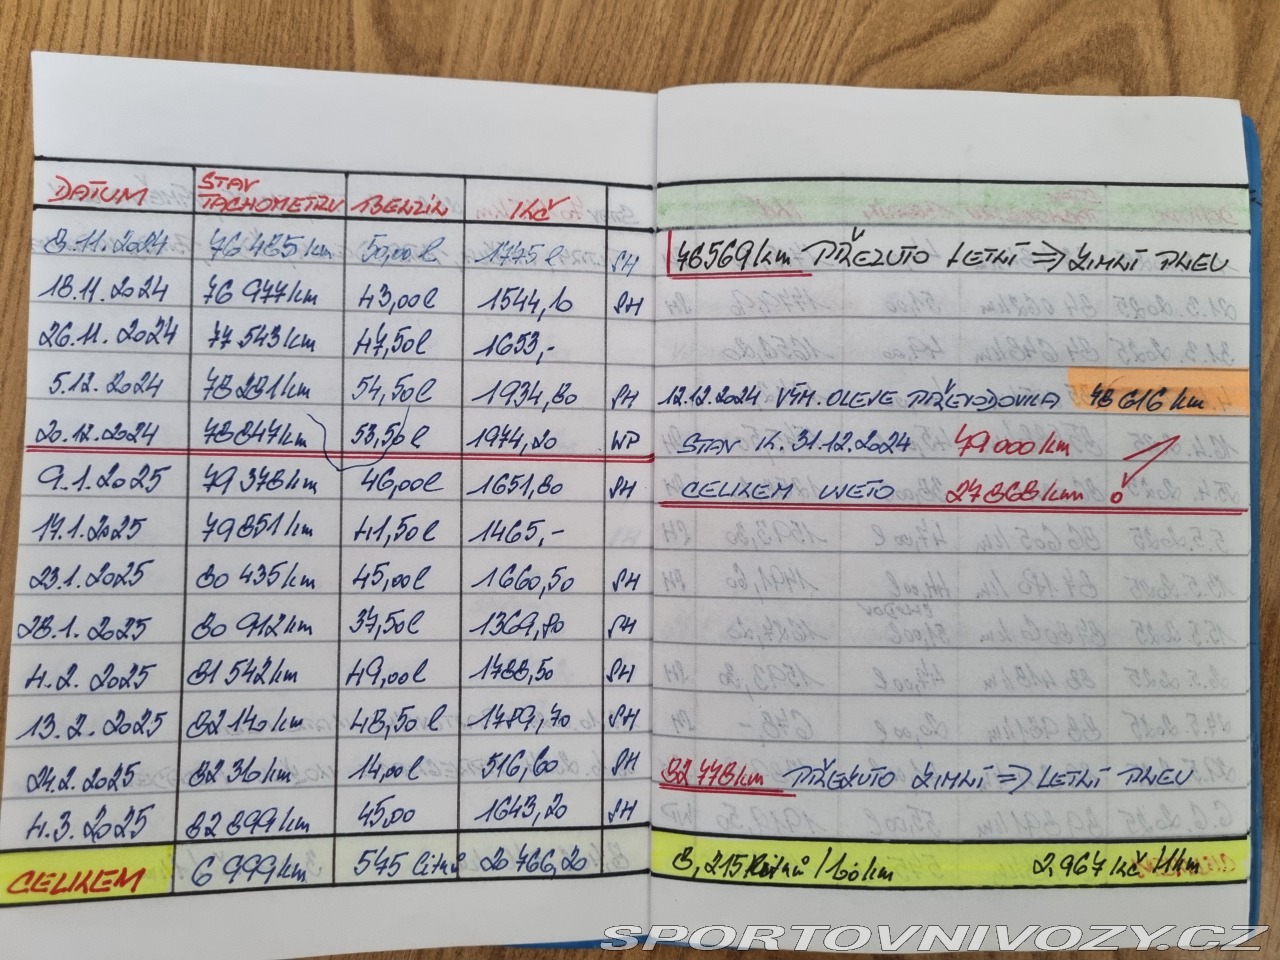 DATUM STAV TACHOMETRU BENZIN KČ
8.11.2024 76 485 km 50,00 l 1775 SH
18.11.2024 76 977 km 43,00 l 1544,10 SH
26.11.2024 77 543 km 47,50 l 1653,-
5.12.2024 78 281 km 54,50 l 1934,80 SH
20.12.2024 78 847 km 53,50 l 1974,20 WP
9.1.2025 79 378 km 46,00 l 1651,80 SH
17.1.2025 79 851 km 41,50 l 1465,-
23.1.2025 80 435 km 45,00 l 1660,50 SH
28.1.2025 80 912 km 37,50 l 1369,80 SH
4.2.2025 81 542 km 49,00 l 1788,50 SH
13.2.2025 82 140 km 48,50 l 1789,70 SH
24.2.2025 82 316 km 14,00 l 516,60 SH
4.3.2025 82 899 km 45,00 1643,20 SH
CELKEM 6 999 km 545 litrů 20 766,20
78569 km PŘEZUTO LETNÍ ⇒ ZIMNÍ PNEU
12.12.2024 VÝM. OLEJE PŘEVODOVKA 78 616 km
STAV K. 31.12.2024 79 000 km
CELKEM UJETO 27 868 km
82 778 km PŘEZUTO ZIMNÍ ⇒ LETNÍ PNEU
8,215 litrů / 100 km 2,967 Kč / 1 km
SPORTOVNIVOZY.CZ